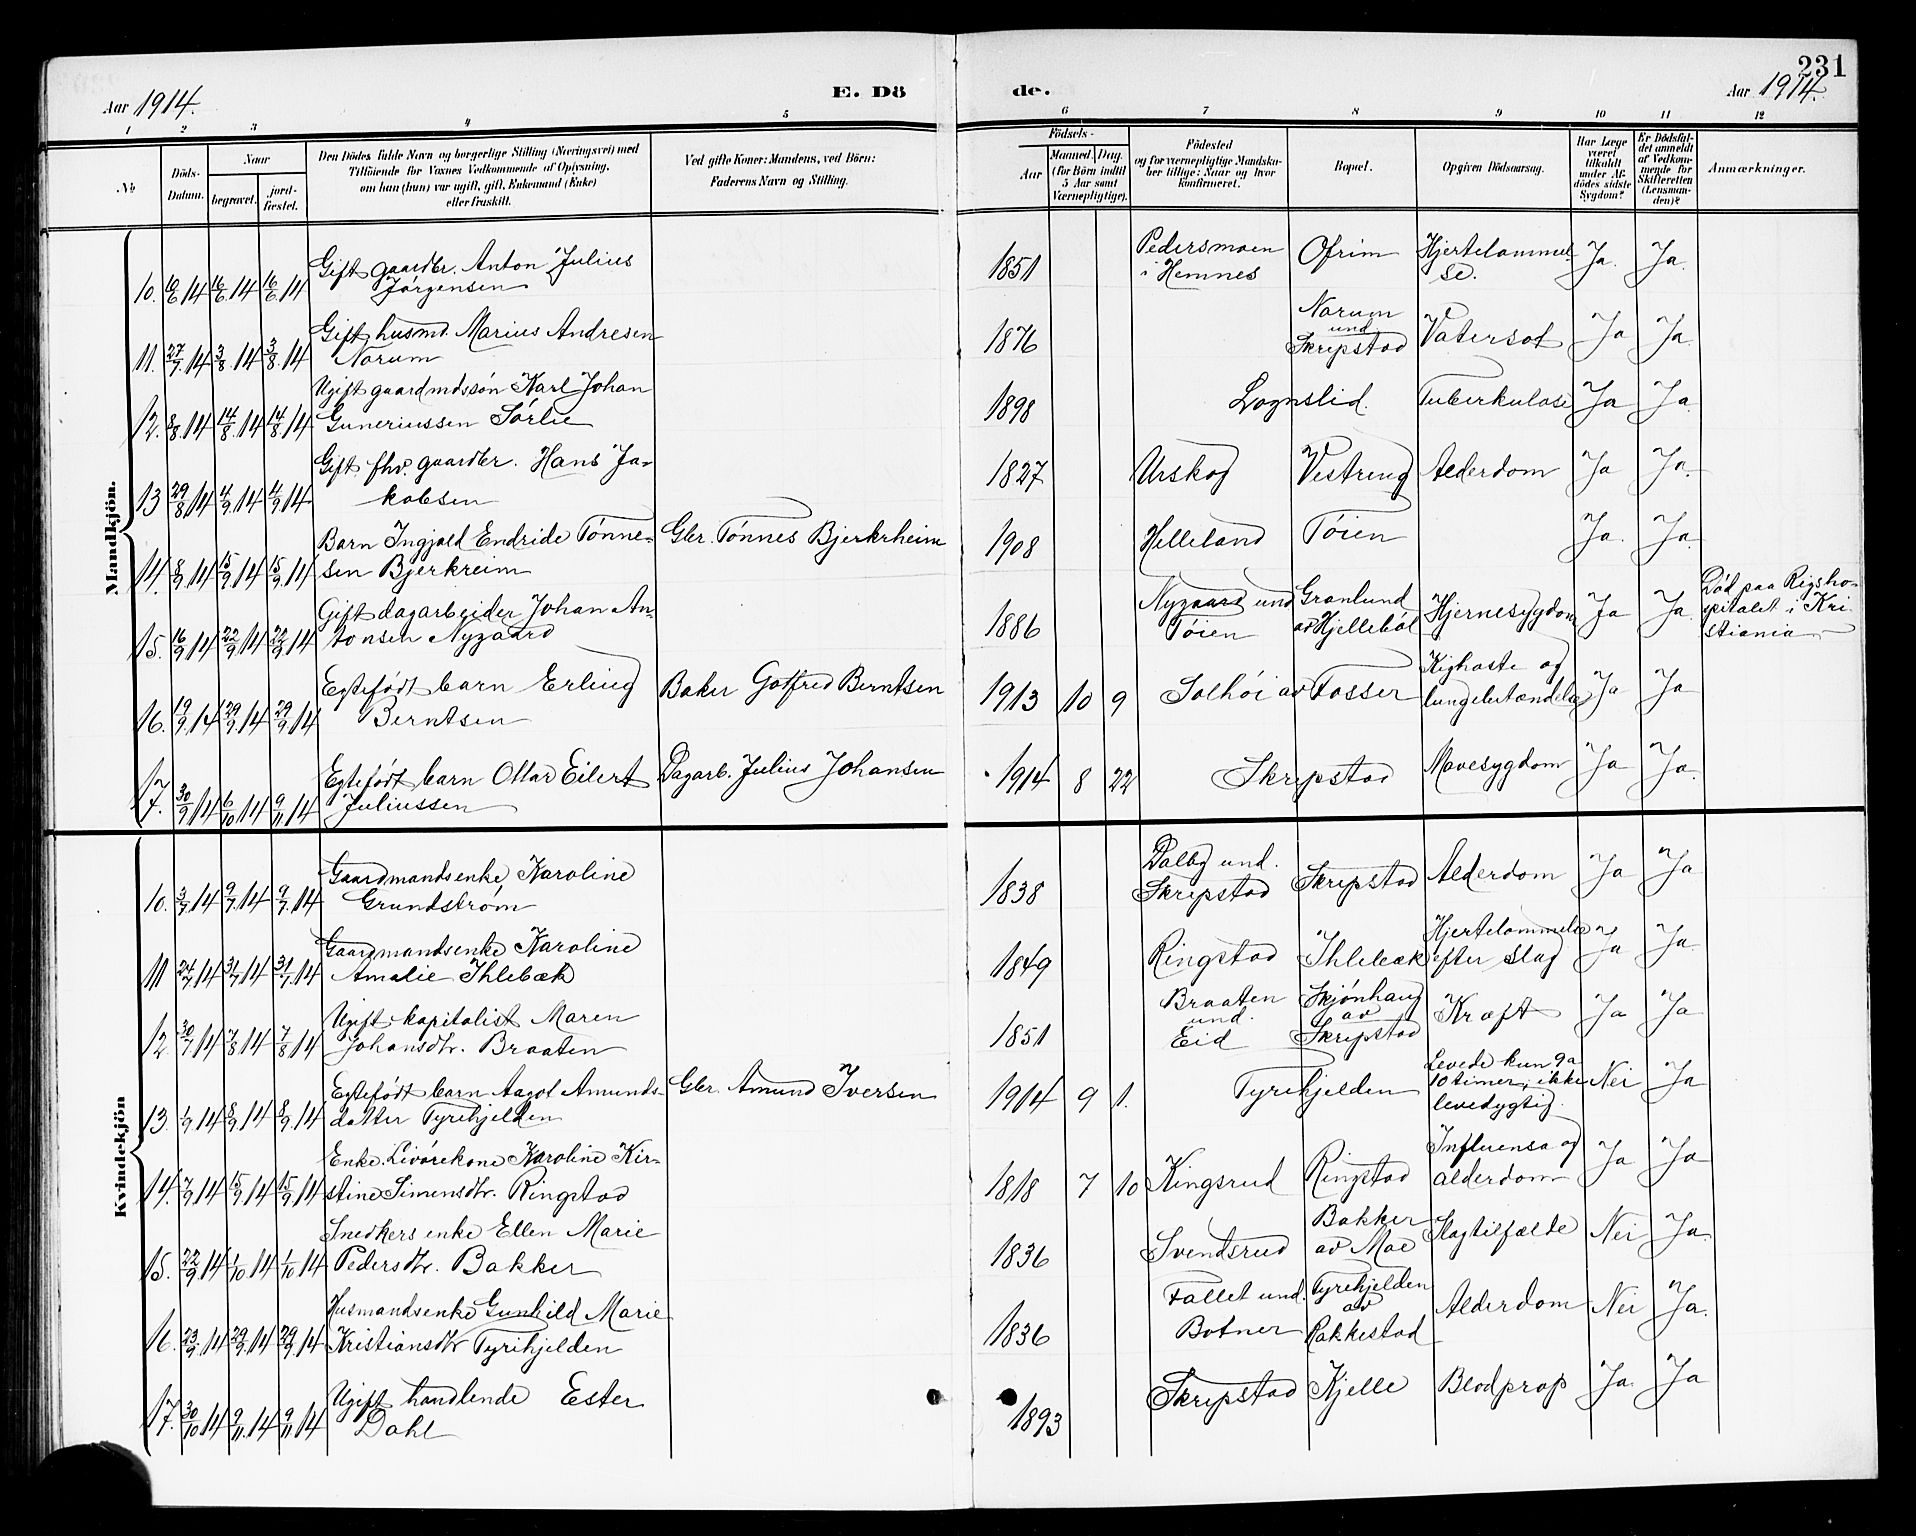 231
Aar 1914.
E. Dö
de.
Aar 1914.
1 2 3 4 5 6 7 8 9 10 11 12
No
Döds-
Datum.
Naar
begravet.
jord-
fæstet.
Den Dödes fulde Navn og borgerlige Stilling (Næringsvei) med
Tilföiende for Voxnes Vedkommende af Oplysning,
om han (hun) var ugift, gift, Enkemand (Enke)
eller fraskilt.
Ved gifte Koner: Mandens, ved Börn:
Faderens Navn og Stilling.
Födsels-
Aar
Maaned. Dag.
(for Börn indtil
5 Aar samt
Værnepligtige).
Födested
og for værnepligtige Mandska-
ber tillige: Naar og hvor
konfirmeret.
Bopæl.
Opgiven Dödsaarsag.
Har Læge
været
tilkaldt
under Af-
dödes sidste
Sygdom?
Er Dödsfal-
det anmeldt
af Vedkom-
mende for
Skifteretten
(Lensman-
den)?
Anmærkninger.
Mandkjön.
10. 10/6 14 16/6 14 16/6 14 Gift gaardbr. Anton Julius
Jørgensen
1851 Pedersmoen
i Hemnes
Ofrim
Hjertelammel
se.
Ja. Ja.
11. 27/7 14 3/8 14 3/8 14 Gift husmd. Marius Andresen
Norum
1876
Norum
und
Skrepstad
Vatersot Ja Ja.
12. 8/8 14 14/8 14 14/8 14 Ugift gaardmdssøn Karl Johan
Guneriussen Sørlie
1898 Lognslid. Tuberkulose Ja Ja.
13 29/8 14 4/9 14 4/9 14 Gift fhv. gaardbr. Hans Ja-
kobsen
1827 Urskog Vestreng Alderdom Ja Ja.
14. 8/9 14 15/9 14 15/9 14 Barn Ingjald Endride Tønne-
sen Bjerkreim
Gbr. Tønnes Bjerkrheim
1908 Helleland Tøien Ja. Ja.
15. 16/9 14 22/9 14 22/9 14 Gift dagarbeider Johan An-
tonsen Nygaard
1886 Nygaard und
Tøien
Granlund
av Hjellebøl
Hjernesygdom Ja Ja.
Død paa Rigsho-
spitalet i Kri-
stiania
16. 19/9 14 29/9 14 29/9 14 Egtefødt barn Erling
Berntsen
Baker Gotfred Berntsen
1913 10 9 Solhøi av Fosser
Kighoste og
lungebetændelse
Ja Ja
17. 30/9 14 6/10 14 9/11 14 Egtefødt barn Ottar Eilert
Juliussen
Dagarb. Julius Johansen
1914 8 22 Skrepstad Mavesygdom Ja Ja.
Kvindekjön
10. 3/7 14 9/7 14 9/7 14 Gaardmandsenke Karoline
Grundstrøm
1838 Dalby und.
Skrepstad
Skrepstad Alderdom Ja Ja
11 24/7 14 31/7 14 31/7 14 Gaardmandsenke Karoline
Amalie Ihlebæk
1849 Ringstad Ihlebæk
Hjertelammelse
efter slag
Ja Ja.
12. 30/7 14 7/8 14 7/8 14 Ugift kapitalist Maren
Johansdtr. Braaten
1851 Braaten
und.
Eid
Skjønhaug
av
Skrepstad
Kræft Ja Ja
13. 1/9 14 8/9 14 8/9 14 Egtefødt barn Aagot Amunds-
datter Tyrihjelden
Gbr. Amund Iversen
1914 9 1. Tyrihjelden
Levede kun 9 a
10 timer, ikke
levedygtig.
Nei Ja
14. 7/9 14 15/9 14 15/9 14 Enke. Livørekone Karoline Kir-
stine Simensdtr. Ringstad
1818 7 10 Kingsrud Ringstad
Influensa og
alderdom
Ja Ja
15. 22/9 14 1/10 14 1/10 14 Snedkers enke Ellen Marie
Pedersdtr. Bakker
1836 Svendsrud
Bakker
av Moe
Slagtilfælde Nei Ja.
16. 23/9 14 29/9 14 29/9 14 Husmandsenke Gunhild Marie
Kristiansdtr Tyrihjelden
1836 Fallet und.
Botner
Tyrihjelden
av
Rakkestad
Alderdom Nei Ja.
17. 30/10 14 9/11 14 9/11 14 Ugift handlende Ester
Dahl
1893 Skrepstad Kjelle Blodprop Ja. Ja